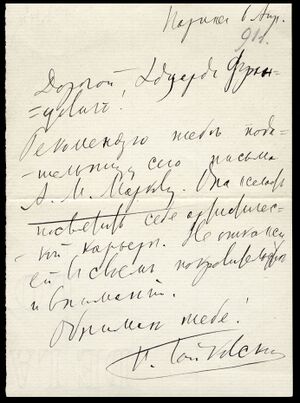 Парижъ 6 Апр.
91 г.
Дорогой Эдуардъ Фран-
=цовичъ!
Рекомендую тебѣ пода-
=тельницу сего письма
А. М. Маркову. Она желаетъ
посвятить себя артистичес-
=кой карьерѣ. Не откажи
ей въ своемъ покровительствѣ
и вниманіи.
Обнимаю тебя!
П. Чайковскій